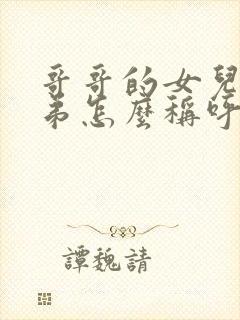 哥哥的女兒
弟怎麼稱呼
譚魏請